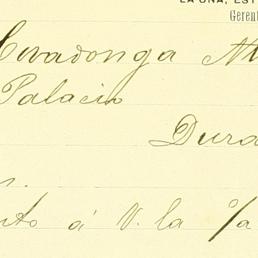 LA UNA, EST
Gerent
Covadonga M
Palacio
Dura
s.
nto á V. la %a